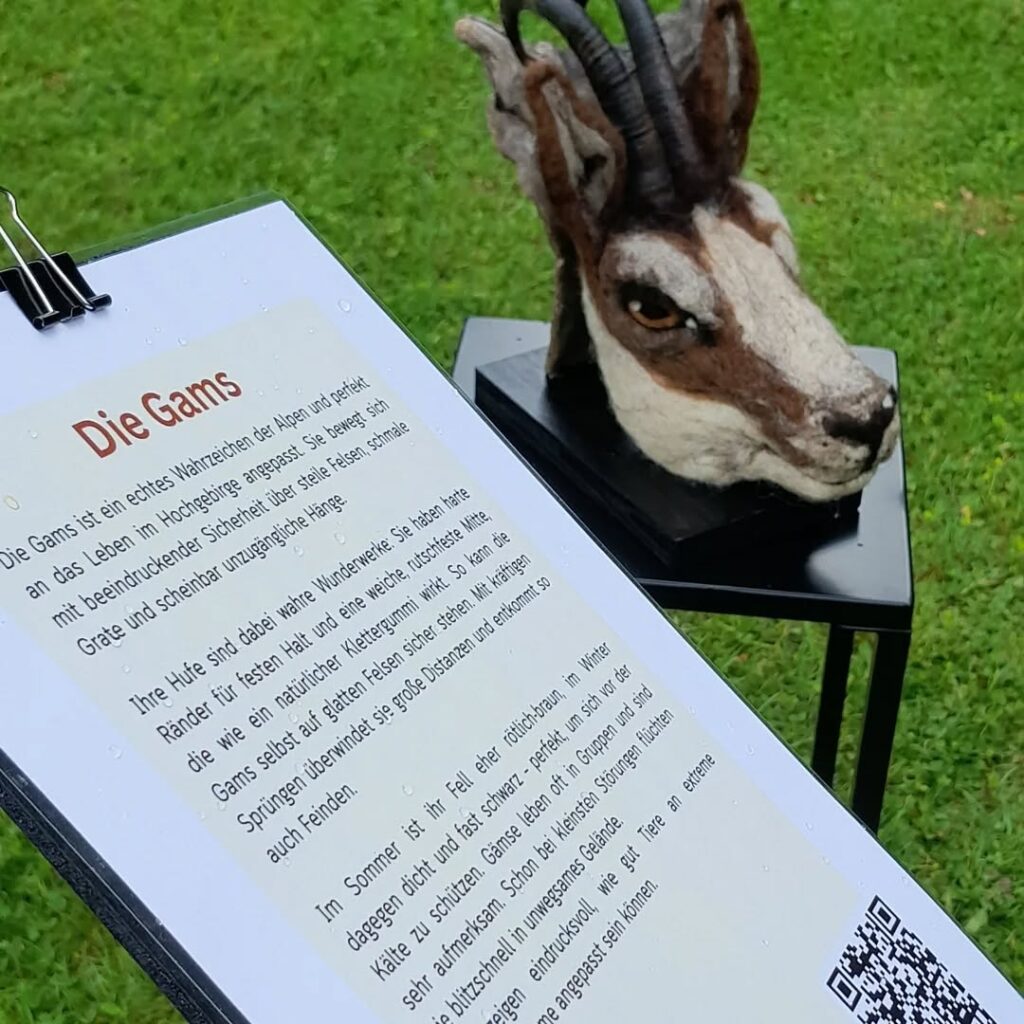 Die Gams
Die Gams ist ein echtes Wahrzeichen der Alpen und perfekt
an das Leben im Hochgebirge angepasst. Sie bewegt sich
mit beeindruckender Sicherheit über steile Felsen, schmale
Grate und scheinbar unzugängliche Hänge.
Ihre Hufe sind dabei wahre Wunderwerke: Sie haben harte
Ränder für festen Halt und eine weiche, rutschfeste Mitte,
die wie ein natürlicher Klettergummi wirkt. So kann die
Gams selbst auf glatten Felsen sicher stehen. Mit kräftigen
Sprüngen überwindet sie große Distanzen und entkommt so
auch Feinden.
Im Sommer ist ihr Fell eher rötlich-braun, im Winter
dagegen dicht und fast schwarz - perfekt, um sich vor der
Kälte zu schützen. Gämse leben oft in Gruppen und sind
sehr aufmerksam. Schon bei kleinsten Störungen flüchten
blitzschnell in unwegsames Gelände.
eindrucksvoll, wie gut Tiere an extreme
angepasst sein können.